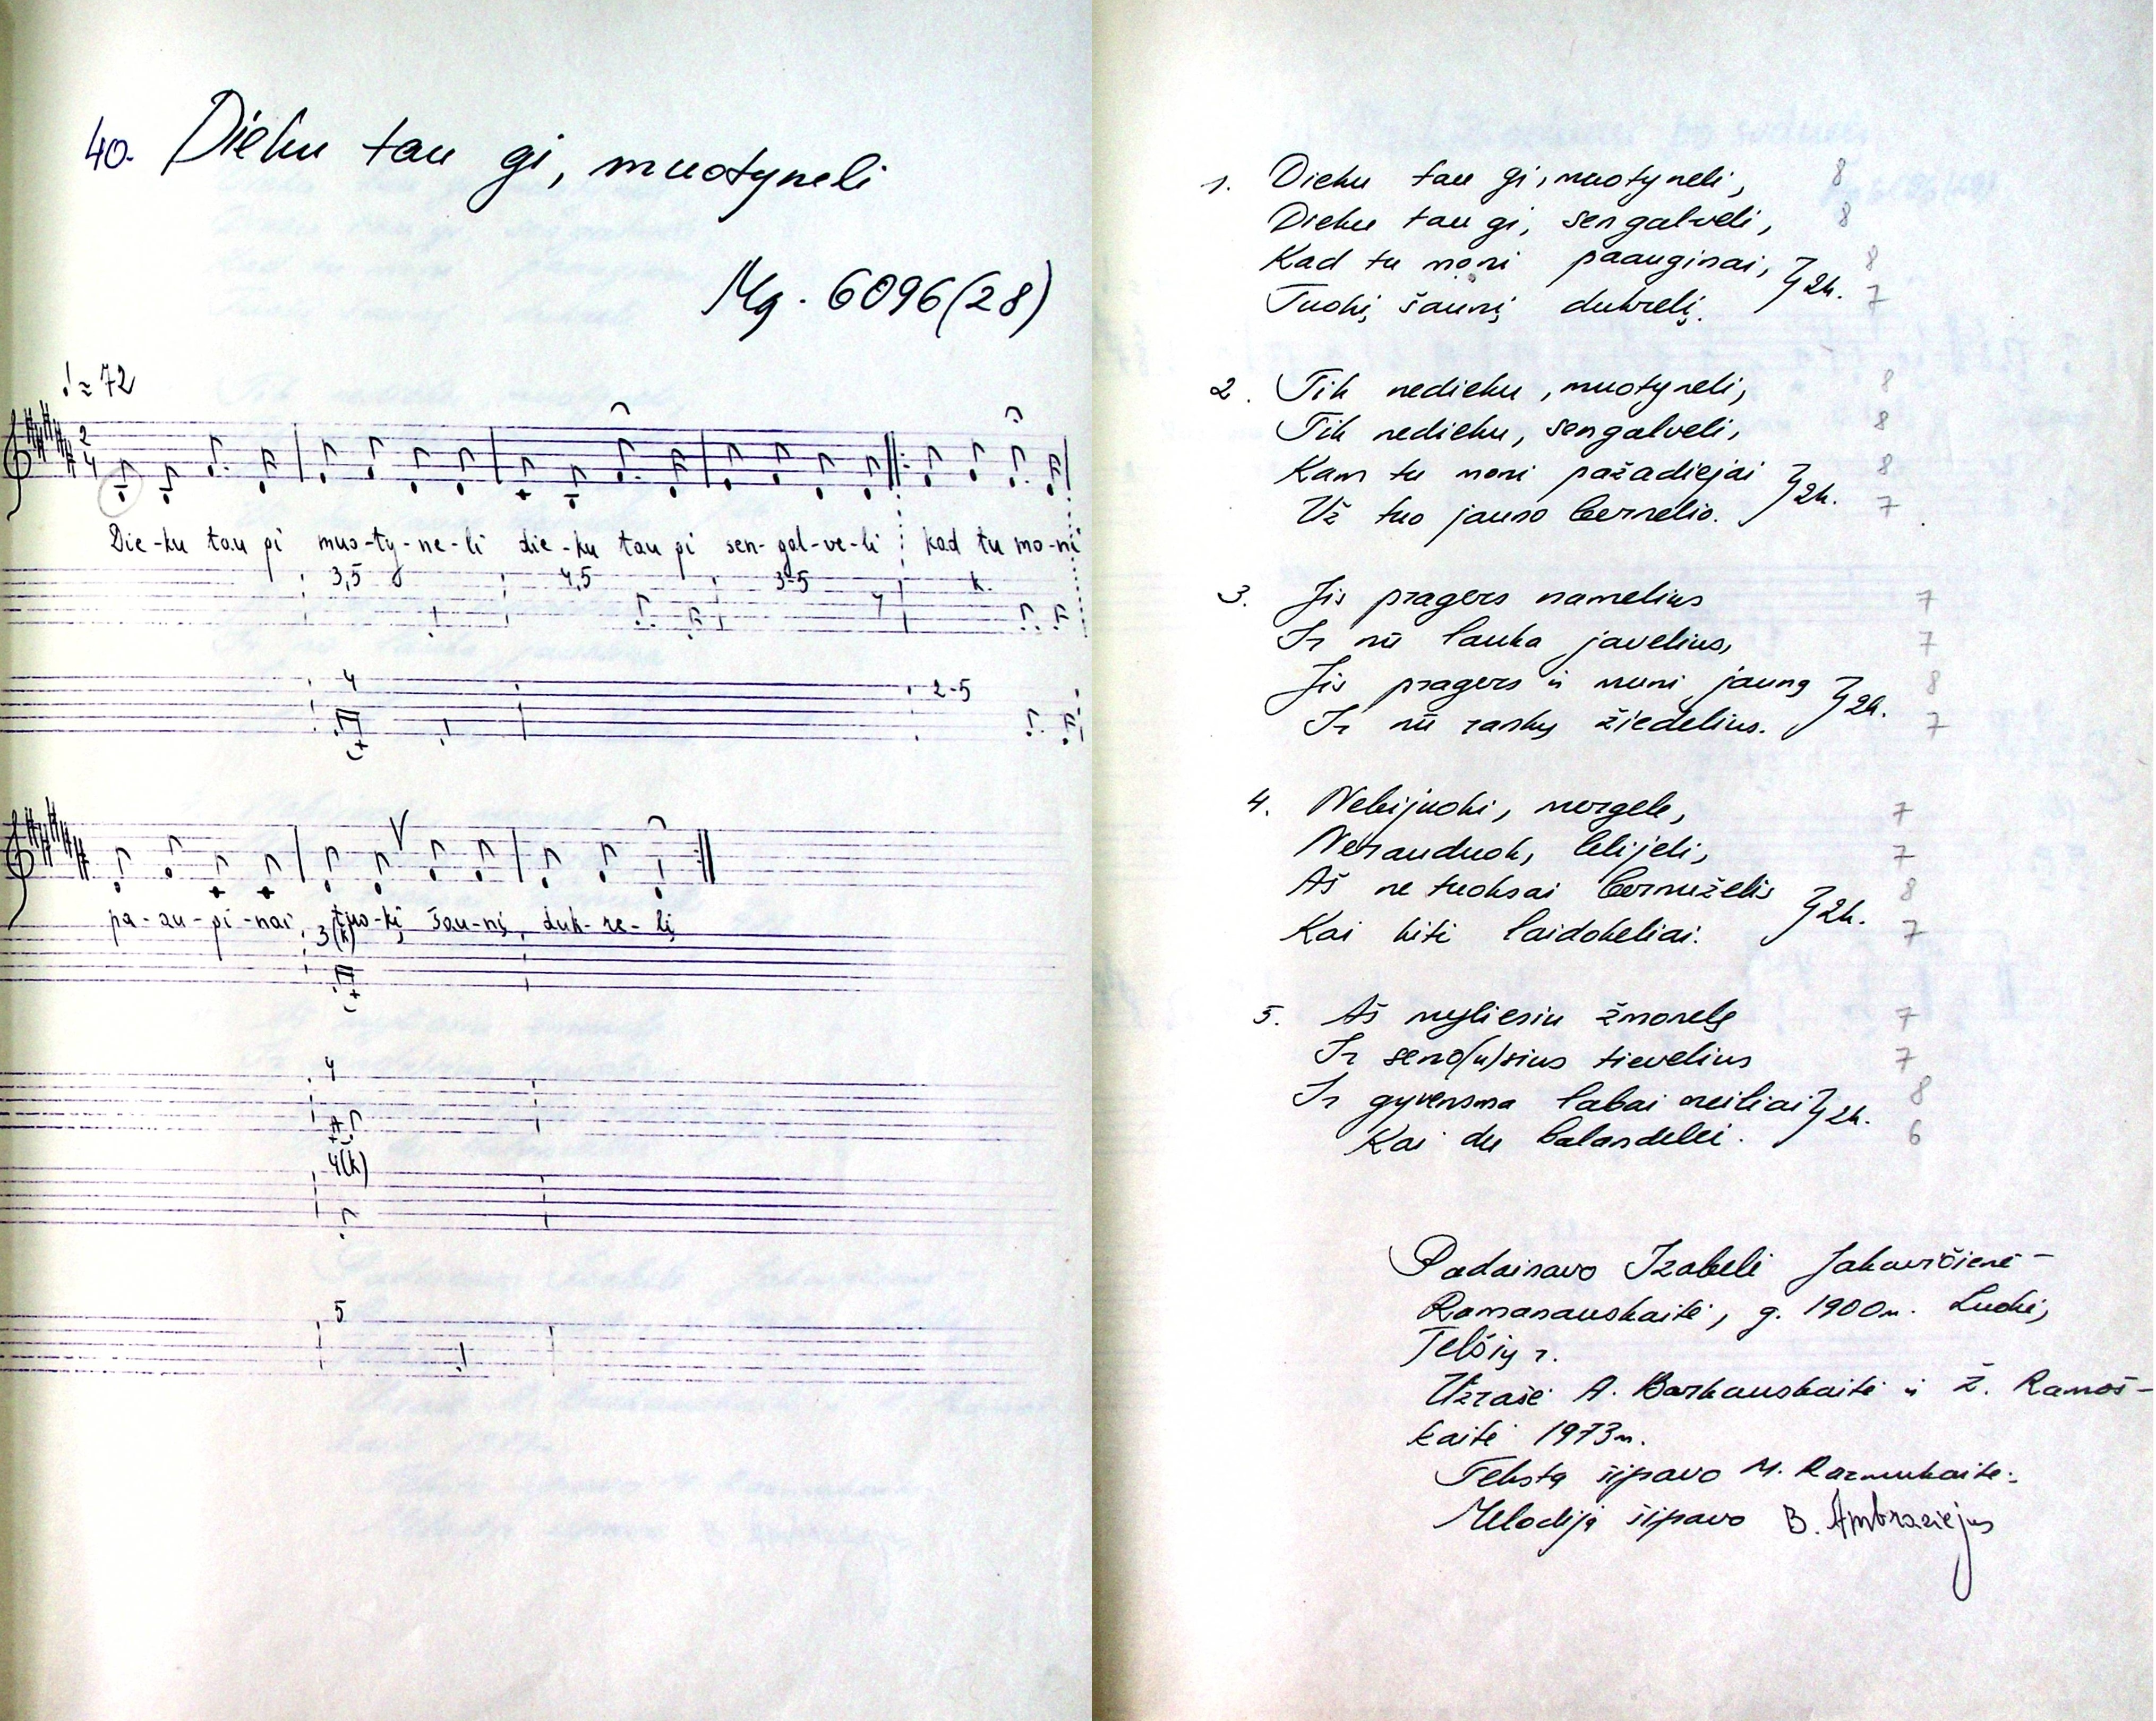 40. Dieku tau gi, muotyneli
Mg. 6096(28)
♩ = 72
2
4
Die-ku tau gi muo-ty-ne-li die-ku tau gi sen-gal-ve-li kad tu mo-ni
3,5 4,5 3-5 k.
4 2-5
pa-au-gi-nai, tuo-kį šau-nį, duk-re-lį
3(k)
4
4(k)
5
1. Dieku tau gi, muotyneli, 8
Dieku tau gi, sengalveli, 8
Kad tu moni paauginai, 8
Tuokį šaunį dukrelį. } 2k. 7
2. Tik nedieku, muotyneli, 8
Tik nedieku, sengalveli, 8
Kam tu moni pažadiejai 8
Už tuo jauno bernelio. } 2k. 7
3. Jis pragers namelius 7
Ir nū lauka javelius, 7
Jis pragers ir muni jauną 8
Ir nū rankų žiedelius. } 2k. 7
4. Nebijuoki, mergele, 7
Nerauduok, lelijeli, 7
Aš ne tuoksai bernuželis 8
Kai kiti laidokeliai. } 2k. 7
5. Aš myliesiu žmonelę 7
Ir seno(u)sius tievelius 7
Ir gyvensma labai meiliai 8
Kai du balandelei. } 2k. 6
Padainavo Izabelė Jakavičienė-
Ramanauskaitė, g. 1900m. Luokė,
Telšių r.
Užrašė A. Barkauskaitė ir Ž. Ramoš-
kaitė 1973m.
Tekstą šifravo M. Razmukaitė.
Melodiją šifravo B. Ambraziejus